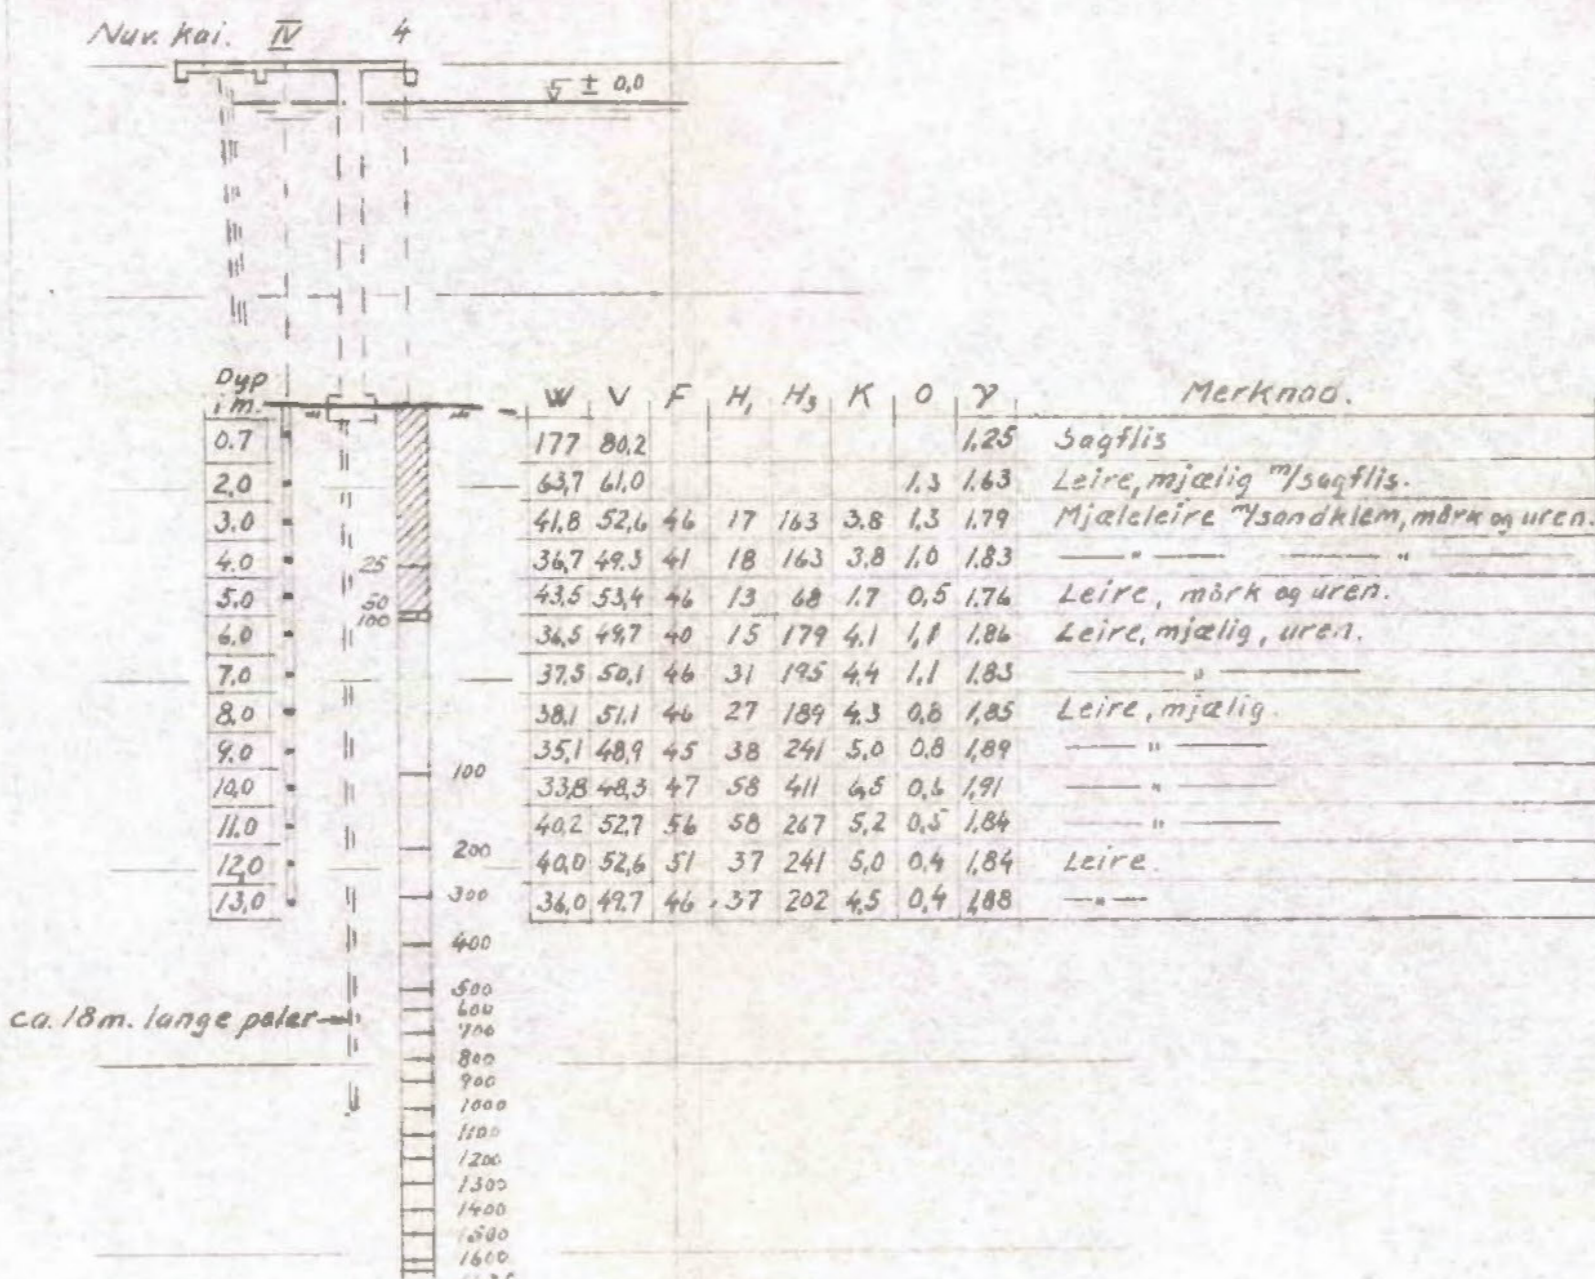 Nuv. kai. IV 4
± 0,0
Dyp i m. W V F H₁ H₃ K O γ Merknad.
0.7 177 80,2 1,25 Sagflis
2,0 63,7 61,0 1,3 1.63 Leire, mjælig m/sagflis.
3.0 41,8 52,6 46 17 163 3.8 1,3 1.79 Mjæleleire m/sandklem, mörk og uren.
4.0 36,7 49.3 41 18 163 3,8 1,0 1.83 —"— —"—
25
5.0 43,5 53,4 46 13 68 1.7 0,5 1.76 Leire, mörk og uren.
50
100
6,0 36,5 49,7 40 15 179 4.1 1,1 1.86 Leire, mjælig, uren.
7.0 37,5 50,1 46 31 195 4.4 1,1 1.83 —"—
8,0 38,1 51,1 46 27 189 4.3 0,8 1,85 Leire, mjælig.
9.0 35,1 48,9 45 38 241 5,0 0,8 1,89 —"—
100
10,0 33,8 48,3 47 58 411 6,5 0,6 1,91 —"—
11.0 40,2 52,7 56 58 267 5,2 0,5 1,84 —"—
200
12,0 40,0 52,6 51 37 241 5,0 0,4 1,84 Leire.
13,0 36,0 49.7 46 37 202 4,5 0,4 1,88 —"—
300
400
500
600
ca. 18 m. lange peler
700
800
900
1000
1100
1200
1300
1400
1500
1600